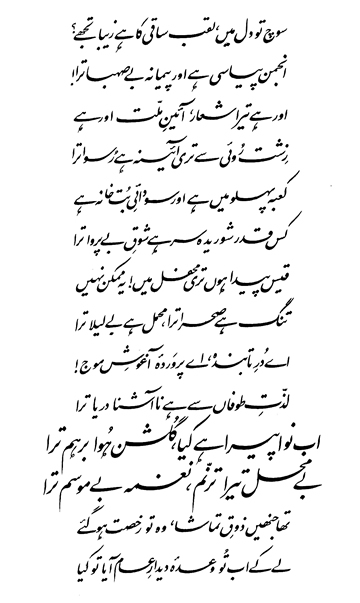 سوچ تو دل میں، لقب ساقی کا ہے زیبا تجھے؟
انجمن پیاسی ہے اور پیمانہ بے صہبا ترا!
اور ہے تیرا شعار، آئینِ ملّت اور ہے
زِشت رُوئی سے تری آئینہ ہے رُسوا ترا
کعبہ پہلو میں ہے اور سودائیِ بُت خانہ ہے
کس قدر شوریدہ سر ہے شوقِ بے پروا ترا
قیس پیدا ہوں تری محفل میں! یہ ممکن نہیں
تنگ ہے صحرا ترا، محمل ہے بے لیلا ترا
اے دُرِ تابندہ، اے پروَردۂ آغوشِ موج!
لذّتِ طوفاں سے ہے ناآشنا دریا ترا
اب نوا پیرا ہے کیا، گُلشن ہُوا برہم ترا
بے محل تیرا ترنّم، نغمہ بے موسم ترا
تھا جنھیں ذوقِ تماشا، وہ تو رُخصت ہو گئے
لے کے اب تُو وعدۂ دیدارِ عام آیا تو کیا